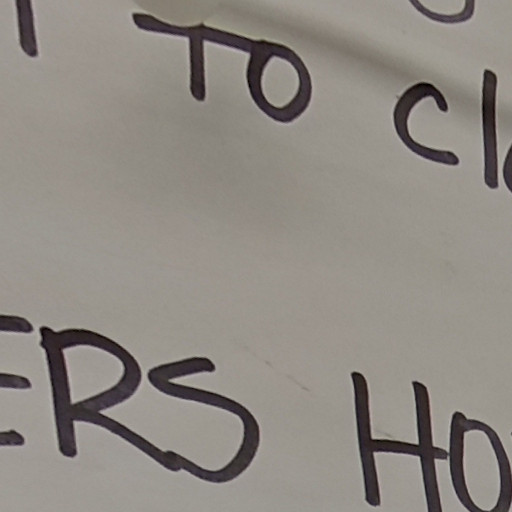 To clo
ERS HO